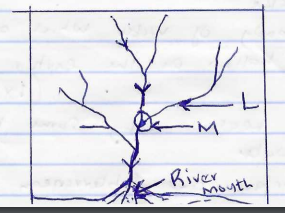 L
M
River
Mouth